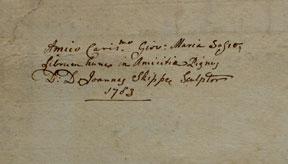 Amico Caris.mo Giov: Maria Sasso,
librum hunc in Amicitia Pignus
D: D Joannes Skippe Sculptor
1783